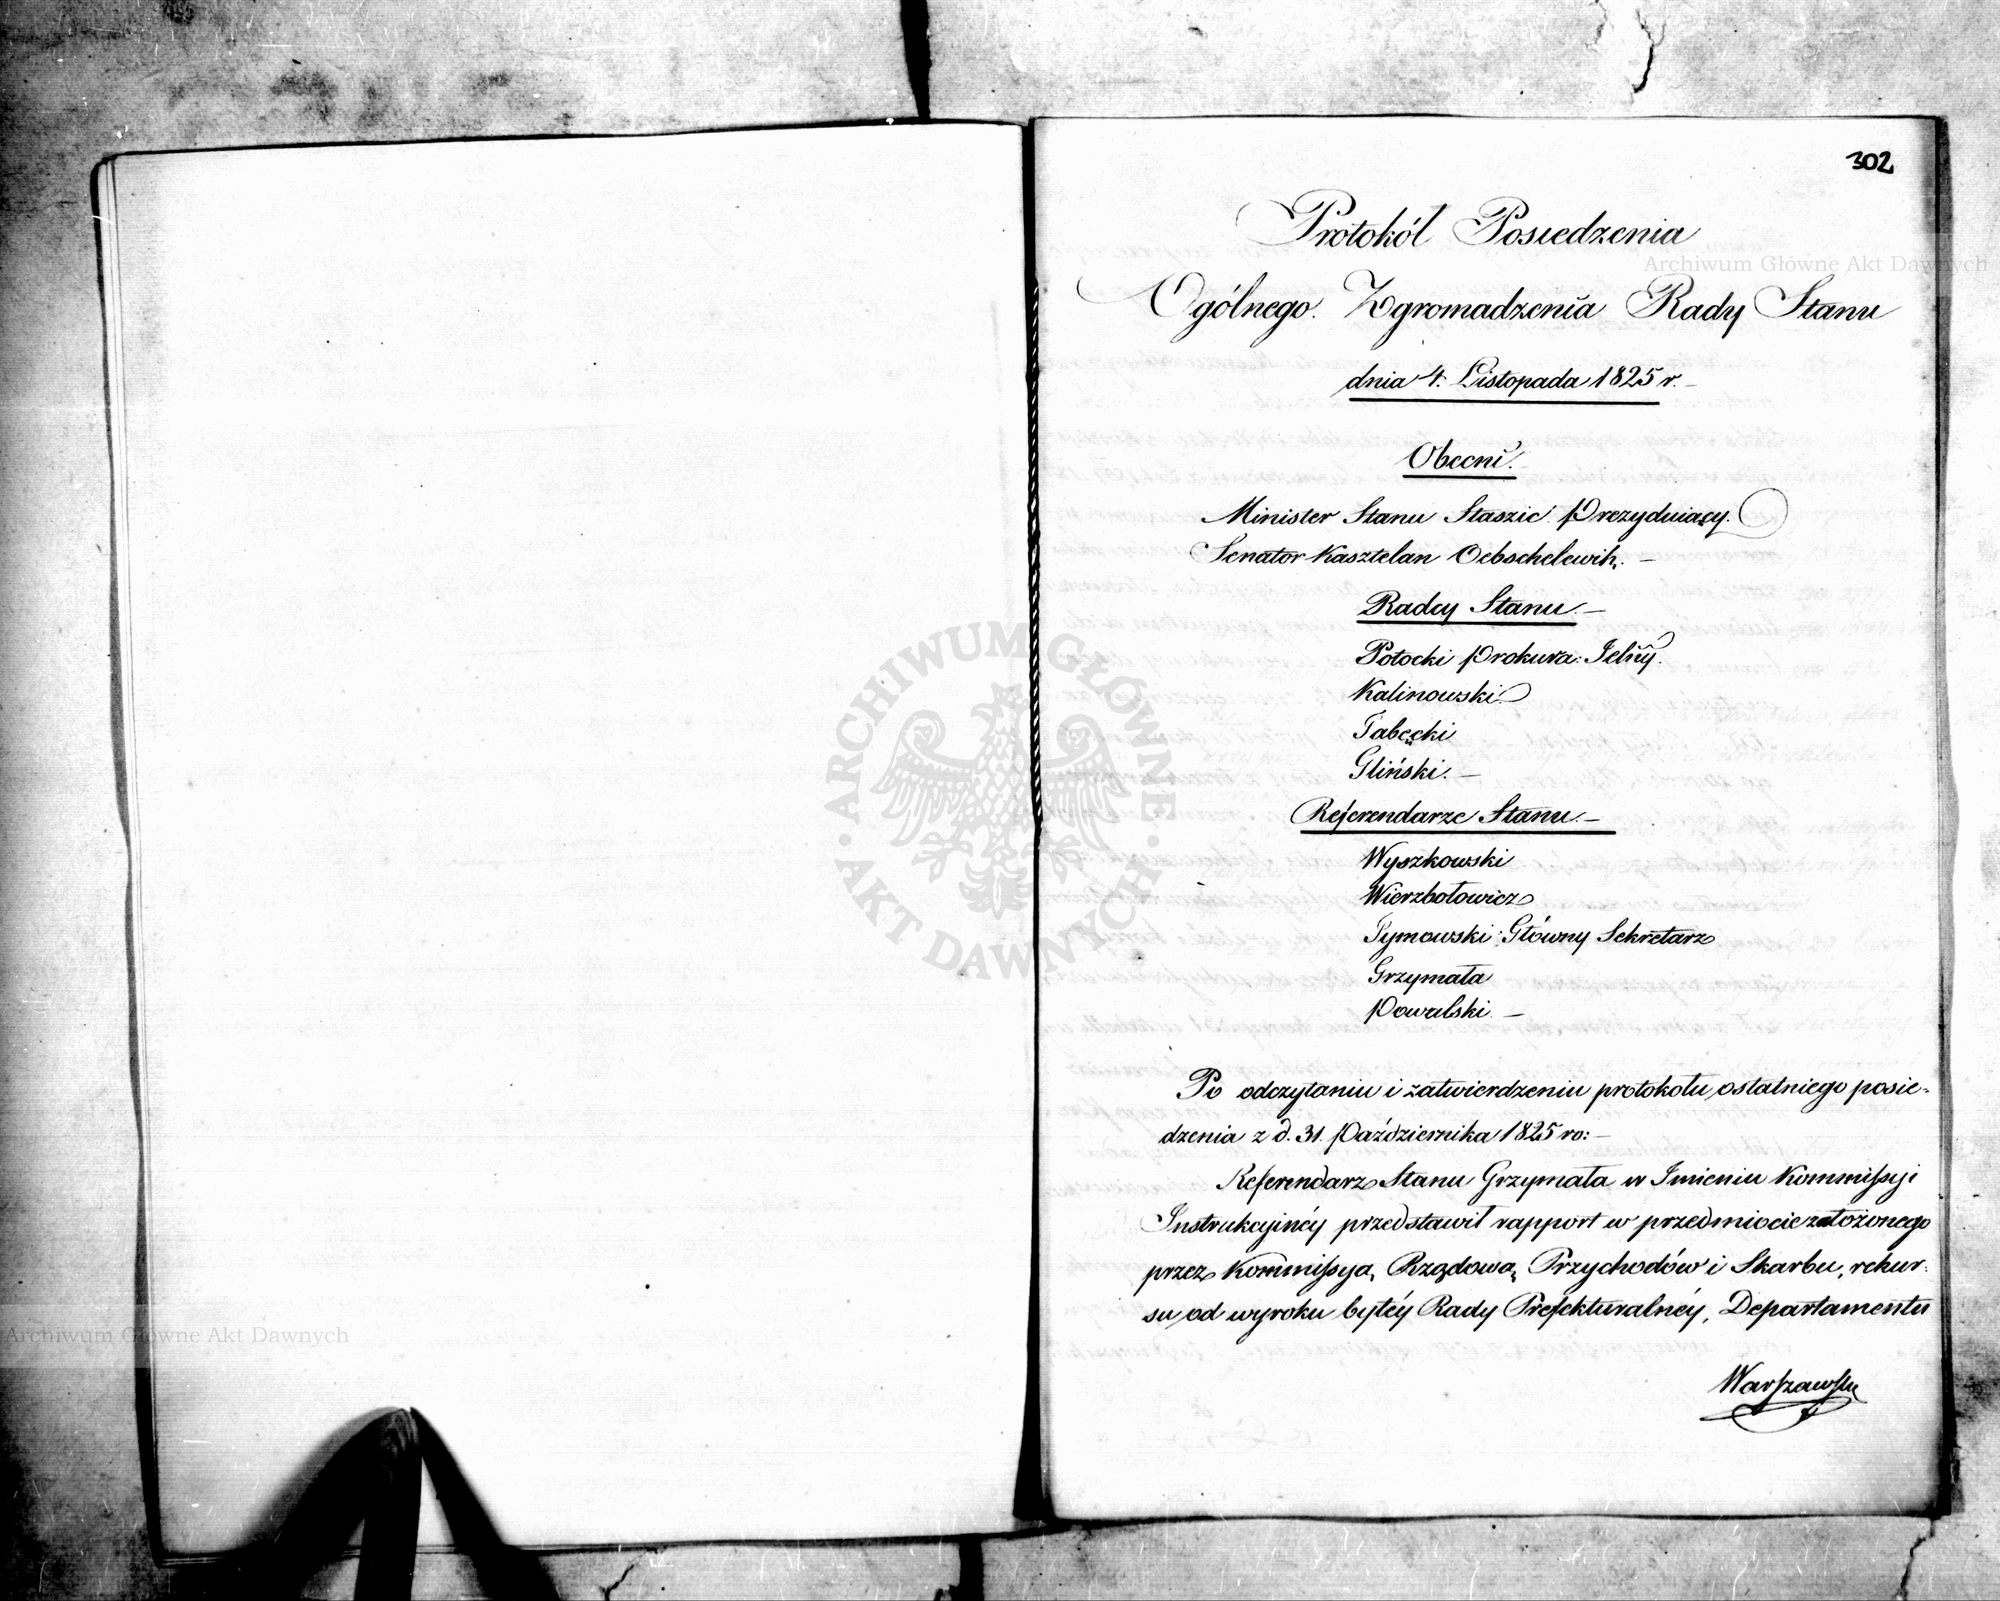 302
Protokół Posiedzenia
Ogólnego Zgromadzenia Rady Stanu
dnia 4. Listopada 1825 r.
Obecni.
Minister Stanu Staszic Prezyduiący.
Senator Kasztelan Oebschelewitz.
Radcy Stanu.
Potocki Prokura: Jelny.
Kalinowski
Tabęcki
Gliński.
Referendarze Stanu.
Wyszkowski
Wierzbołowicz
Tymowski Główny Sekretarz
Grzymała
Powalski.
Po odczytaniu i zatwierdzeniu protokołu ostatniego posie-
dzenia z d. 31. Października 1825 ro:
Referendarz Stanu Grzymała w Imieniu Kommissyi
Instrukcyinéy przedstawił rapport w przedmiocie założonego
przez Kommissyą Rządową Przychodów i Skarbu, rekur-
su od wyroku byłéy Rady Prefekturalnéy, Departamentu
Warszawsk
Archiwum Główne Akt Dawnych
Archiwum Główne Akt Dawnych
ARCHIWUM GŁÓWNE · AKT DAWNYCH ·